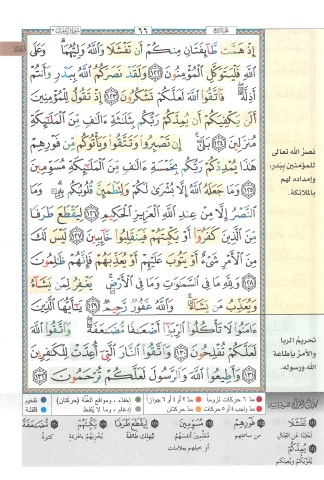 ٦٦
إِذْ هَمَّت طَّآئِفَتَانِ مِنكُمْ أَن تَفْشَلَا وَٱللَّهُ وَلِيُّهُمَا ۗ وَعَلَى
ٱللَّهِ فَلْيَتَوَكَّلِ ٱلْمُؤْمِنُونَ ١٢٢ وَلَقَدْ نَصَرَكُمُ ٱللَّهُ بِبَدْرٍ وَأَنتُمْ
أَذِلَّةٌ ۖ فَٱتَّقُوا۟ ٱللَّهَ لَعَلَّكُمْ تَشْكُرُونَ ١٢٣ إِذْ تَقُولُ لِلْمُؤْمِنِينَ
أَلَن يَكْفِيَكُمْ أَن يُمِدَّكُمْ رَبُّكُم بِثَلَٰثَةِ ءَالَٰفٍ مِّنَ ٱلْمَلَٰٓئِكَةِ
مُنزَلِينَ ١٢٤ بَلَىٰٓ ۚ إِن تَصْبِرُوا۟ وَتَتَّقُوا۟ وَيَأْتُوكُم مِّن فَوْرِهِمْ
هَٰذَا يُمْدِدْكُمْ رَبُّكُم بِخَمْسَةِ ءَالَٰفٍ مِّنَ ٱلْمَلَٰٓئِكَةِ مُسَوِّمِينَ
١٢٥ وَمَا جَعَلَهُ ٱللَّهُ إِلَّا بُشْرَىٰ لَكُمْ وَلِتَطْمَئِنَّ قُلُوبُكُم بِهِۦ ۗ وَمَا
ٱلنَّصْرُ إِلَّا مِنْ عِندِ ٱللَّهِ ٱلْعَزِيزِ ٱلْحَكِيمِ ١٢٦ لِيَقْطَعَ طَرَفًا
مِّنَ ٱلَّذِينَ كَفَرُوٓا۟ أَوْ يَكْبِتَهُمْ فَيَنقَلِبُوا۟ خَآئِبِينَ ١٢٧ لَيْسَ لَكَ
مِنَ ٱلْأَمْرِ شَىْءٌ أَوْ يَتُوبَ عَلَيْهِمْ أَوْ يُعَذِّبَهُمْ فَإِنَّهُمْ ظَٰلِمُونَ
١٢٨ وَلِلَّهِ مَا فِى ٱلسَّمَٰوَٰتِ وَمَا فِى ٱلْأَرْضِ ۚ يَغْفِرُ لِمَن يَشَآءُ
وَيُعَذِّبُ مَن يَشَآءُ ۚ وَٱللَّهُ غَفُورٌ رَّحِيمٌ ١٢٩ يَٰٓأَيُّهَا ٱلَّذِينَ
ءَامَنُوا۟ لَا تَأْكُلُوا۟ ٱلرِّبَوٰٓا۟ أَضْعَٰفًا مُّضَٰعَفَةً ۖ وَٱتَّقُوا۟ ٱللَّهَ
لَعَلَّكُمْ تُفْلِحُونَ ١٣٠ وَٱتَّقُوا۟ ٱلنَّارَ ٱلَّتِىٓ أُعِدَّتْ لِلْكَٰفِرِينَ
١٣١ وَأَطِيعُوا۟ ٱللَّهَ وَٱلرَّسُولَ لَعَلَّكُمْ تُرْحَمُونَ ١٣٢
نصرُ الله تعالى
للمؤمنين ببدر،
وإمداده لهم
بالملائكة.
تحريمُ الربا
والأمرُ بإطاعة
الله ورسوله.
مدّ ٦ حركات لزوماً مدّ ٢ أو ٤ أو ٦ جوازاً إخفاء، ومواقع الغُنَّة (حركتان) تفخيم
مدّ واجب ٤ أو ٥ حركات مدّ حركتان إدغام، وما لا يُلفَظ قلقلة
تَفْشَلَا
فَوْرِهِمْ
مُسَوِّمِينَ
لِيَقْطَعَ طَرَفًا
يَكْبِتَهُمْ
مُضَاعَفَةً
يُمِدَّكُمْ
من ساعتهم
ليُهلك طائفة
كثيرةً